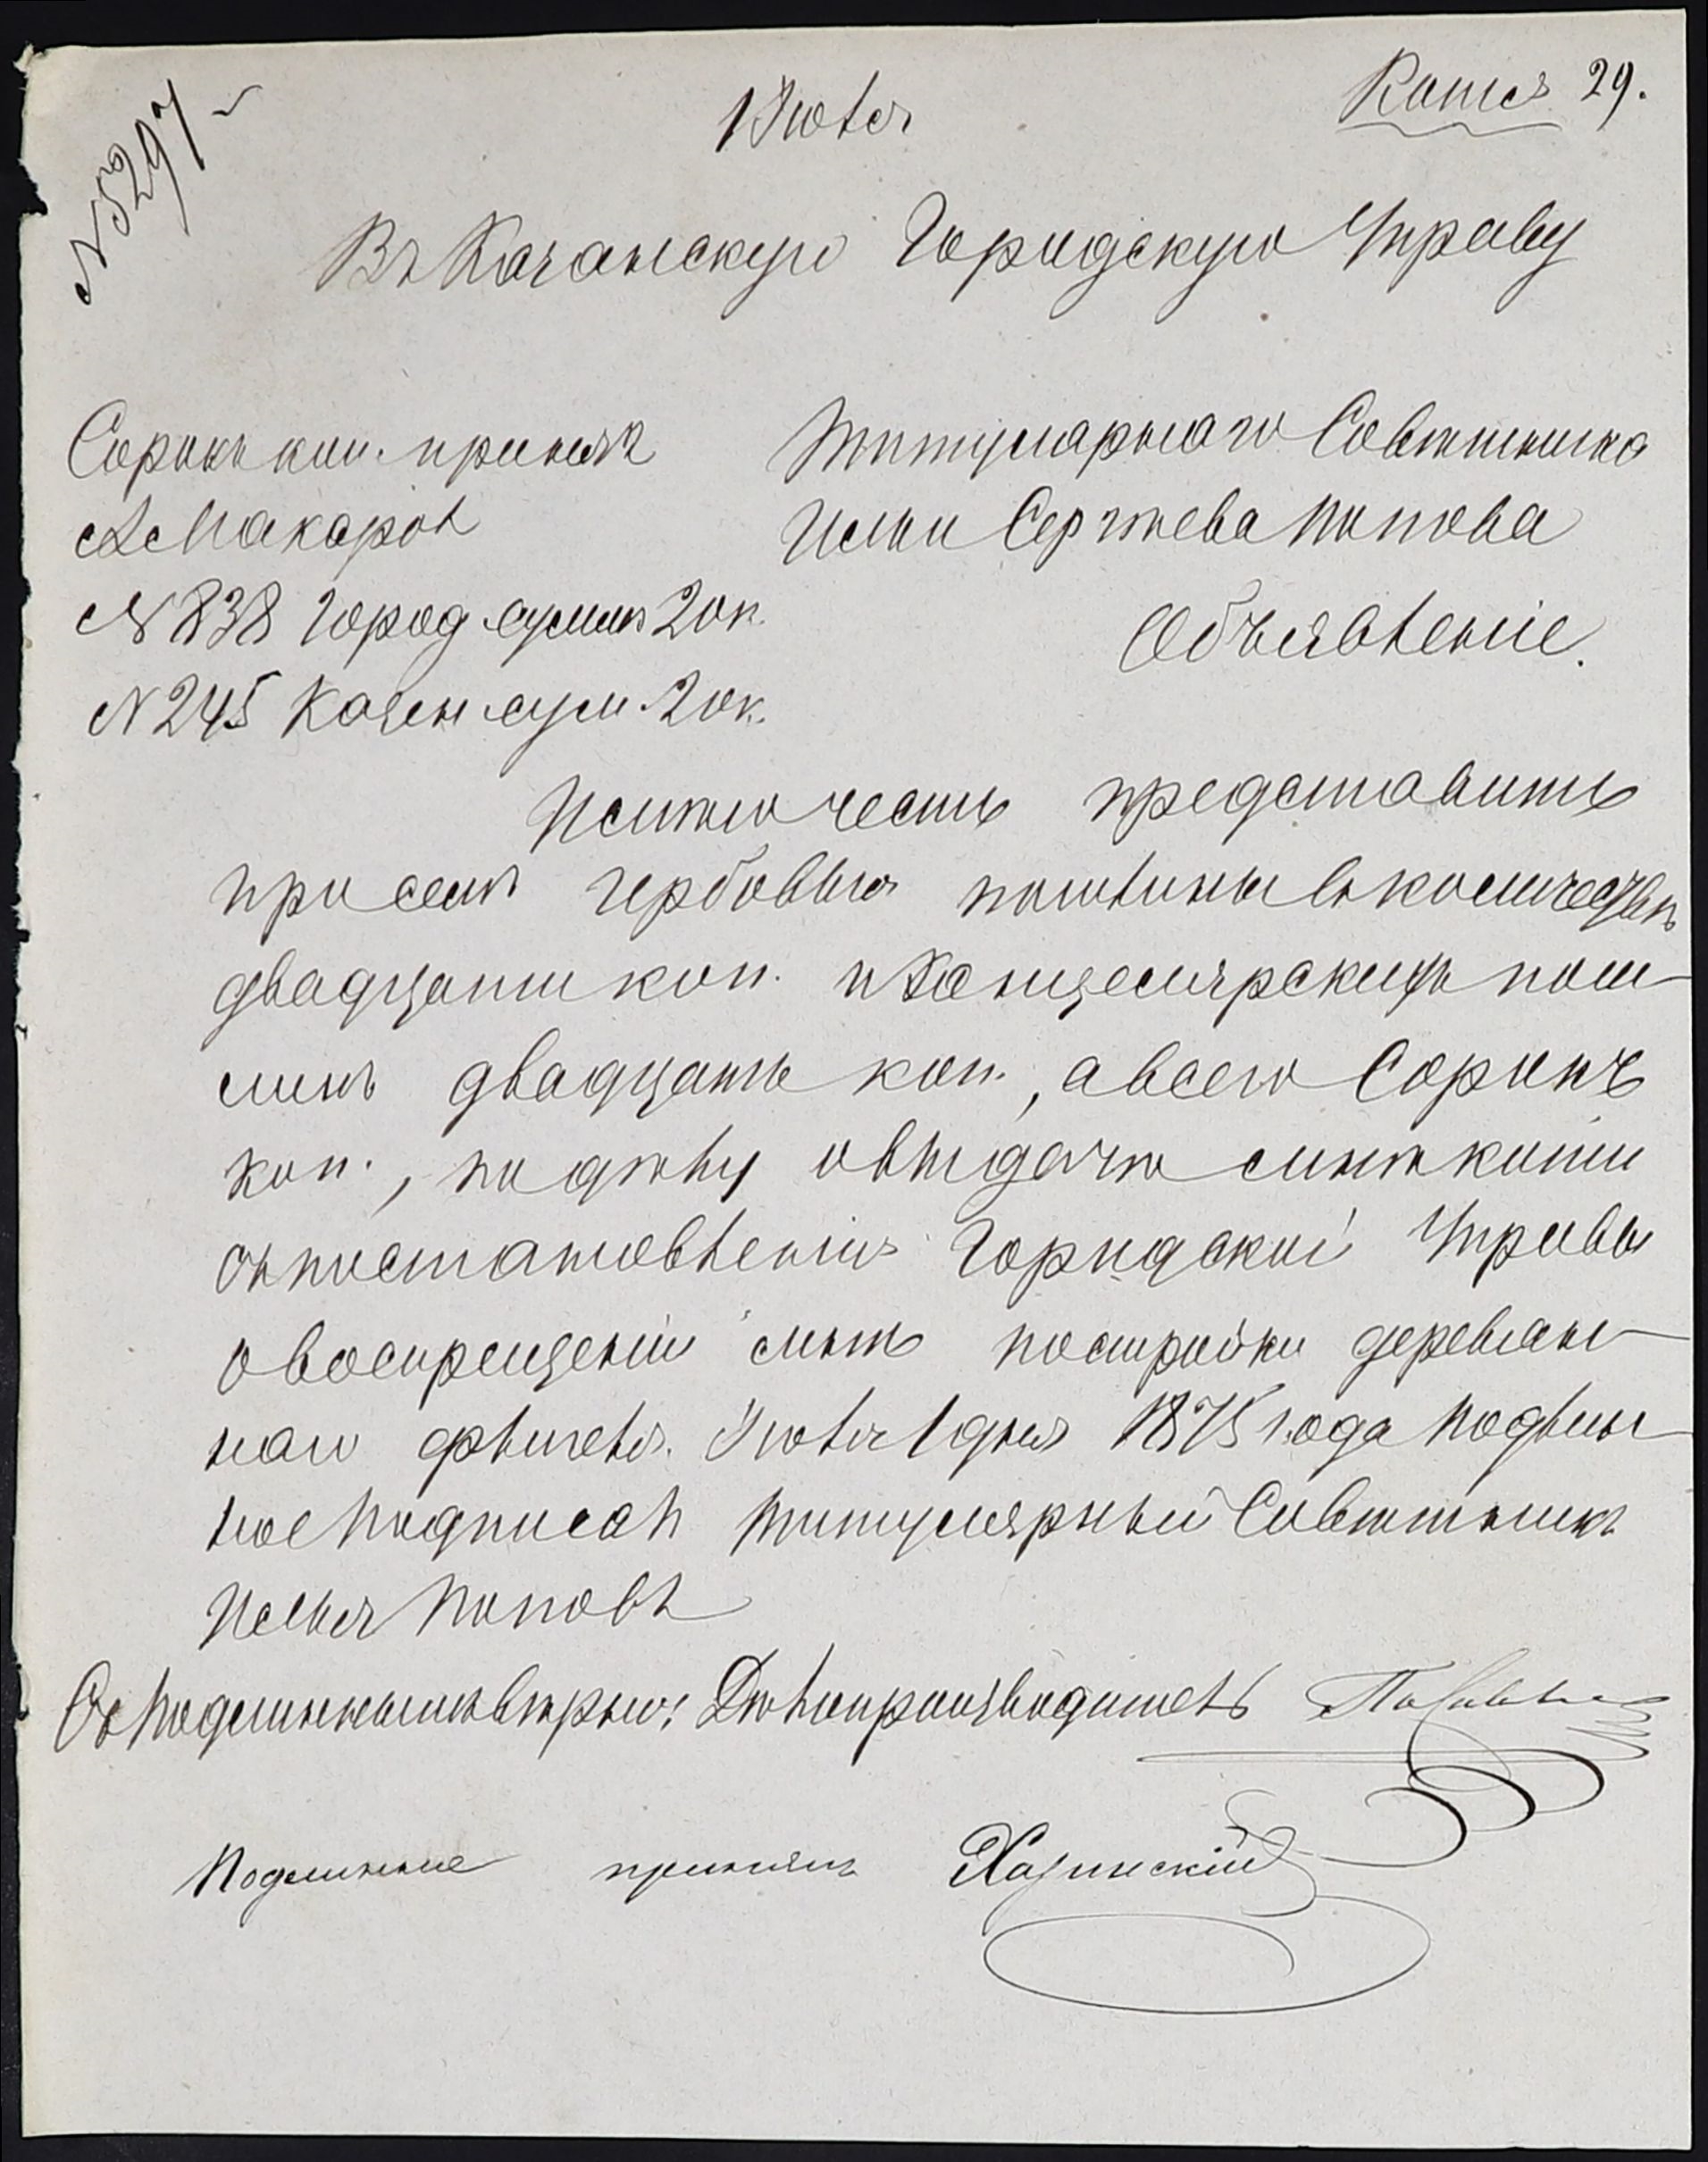 № 5297
1 Іюля
Копія 29.
Въ Казанскую Городскую Управу
Сорокъ коп. принялъ
А Макаровъ
№ 838 город. сумм 20 к.
№ 245 Казен сум. 20 к.
Титулярнаго Совѣтника
Ильи Сергѣева Попова
Объявленіе.
Имѣю честь представить
при семъ гербовыя пошлины въ количествѣ
двадцати коп. и Канцелярскихъ пош-
линъ двадцать коп., а всего Сорокъ
коп., по дѣлу о выдачѣ мнѣ копіи
съ постановленія Городской Управы
о воспрещеніи мнѣ постройки деревян-
наго флигеля. Іюля 1 дня 1875 года Подлин-
ное подписалъ Титулярный Совѣтникъ
Илья Поповъ
Съ подлиннымъ вѣрно: Дѣлопроизводитель
Подлинное принялъ